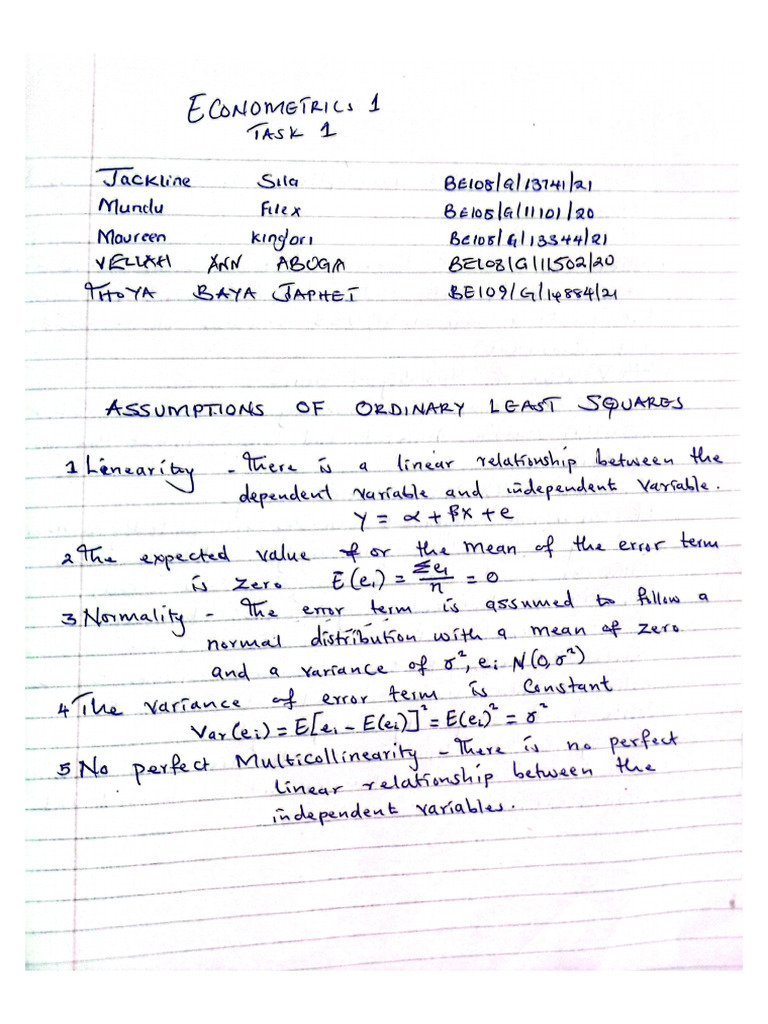 ECONOMETRICS 1
TASK 1
Jackline Sila BE108/G/13741/21
Mundu Filex BE108/G/11101/20
Maureen Kingori BE108/G/13344/21
VELLAH ANN ABUGA BE108/G/11502/20
THOYA BAYA JAPHET BE109/G/14884/21
ASSUMPTIONS OF ORDINARY LEAST SQUARES
1 Linearity - There is a linear relationship between the
dependent variable and independent variable.
Y = α + βx + e
2 The expected value or the mean of the error term
is zero E(ei) = Σei/n = 0
3 Normality - The error term is assumed to follow a
normal distribution with a mean of zero
and a variance of σ², ei N(0,σ²)
4 The variance of error term is constant
Var(ei) = E[ei - E(ei)]² = E(ei)² = σ²
5 No perfect Multicollinearity - There is no perfect
linear relationship between the
independent variables.